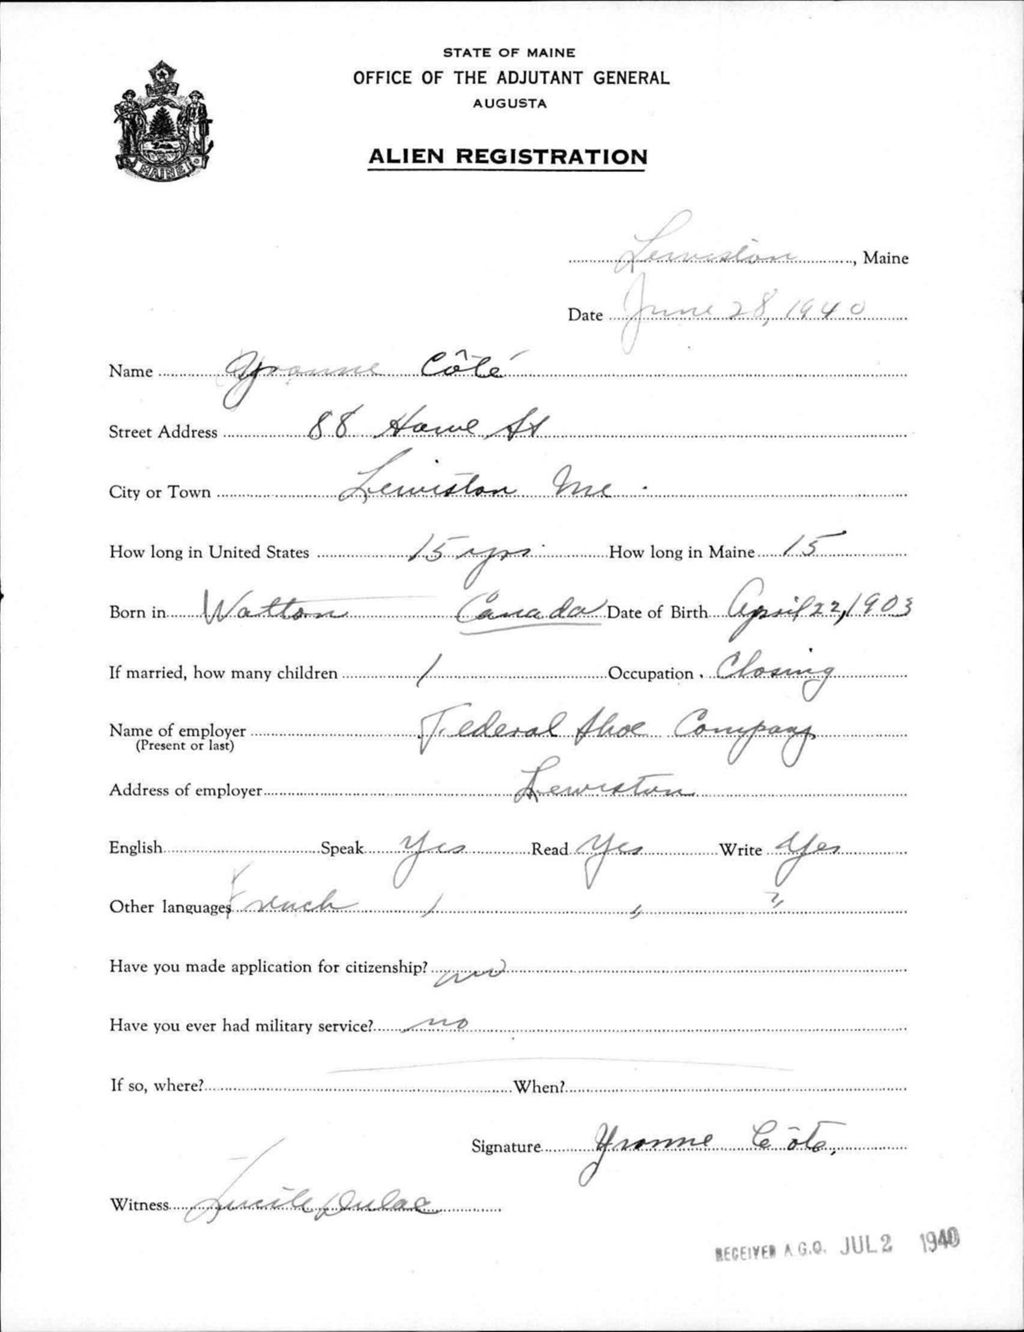 STATE OF MAINE
OFFICE OF THE ADJUTANT GENERAL
AUGUSTA
ALIEN REGISTRATION
MAINE
Lewiston, Maine
Date June 28, 1940
Name Yvonne Côté
Street Address 88 Howe St
City or Town Lewiston Me.
How long in United States 15 yrs. How long in Maine 15
Born in Watton Canada Date of Birth April 22, 1903
If married, how many children 1 Occupation Closing
Name of employer Federal Shoe Company
(Present or last)
Address of employer Lewiston
English Speak Yes Read Yes Write Yes
Other languages French " " "
Have you made application for citizenship? no
Have you ever had military service? no
If so, where? When?
Signature Yvonne Côté
Witness Lucile Dulac
RECEIVED A.G.O. JUL 2 1940